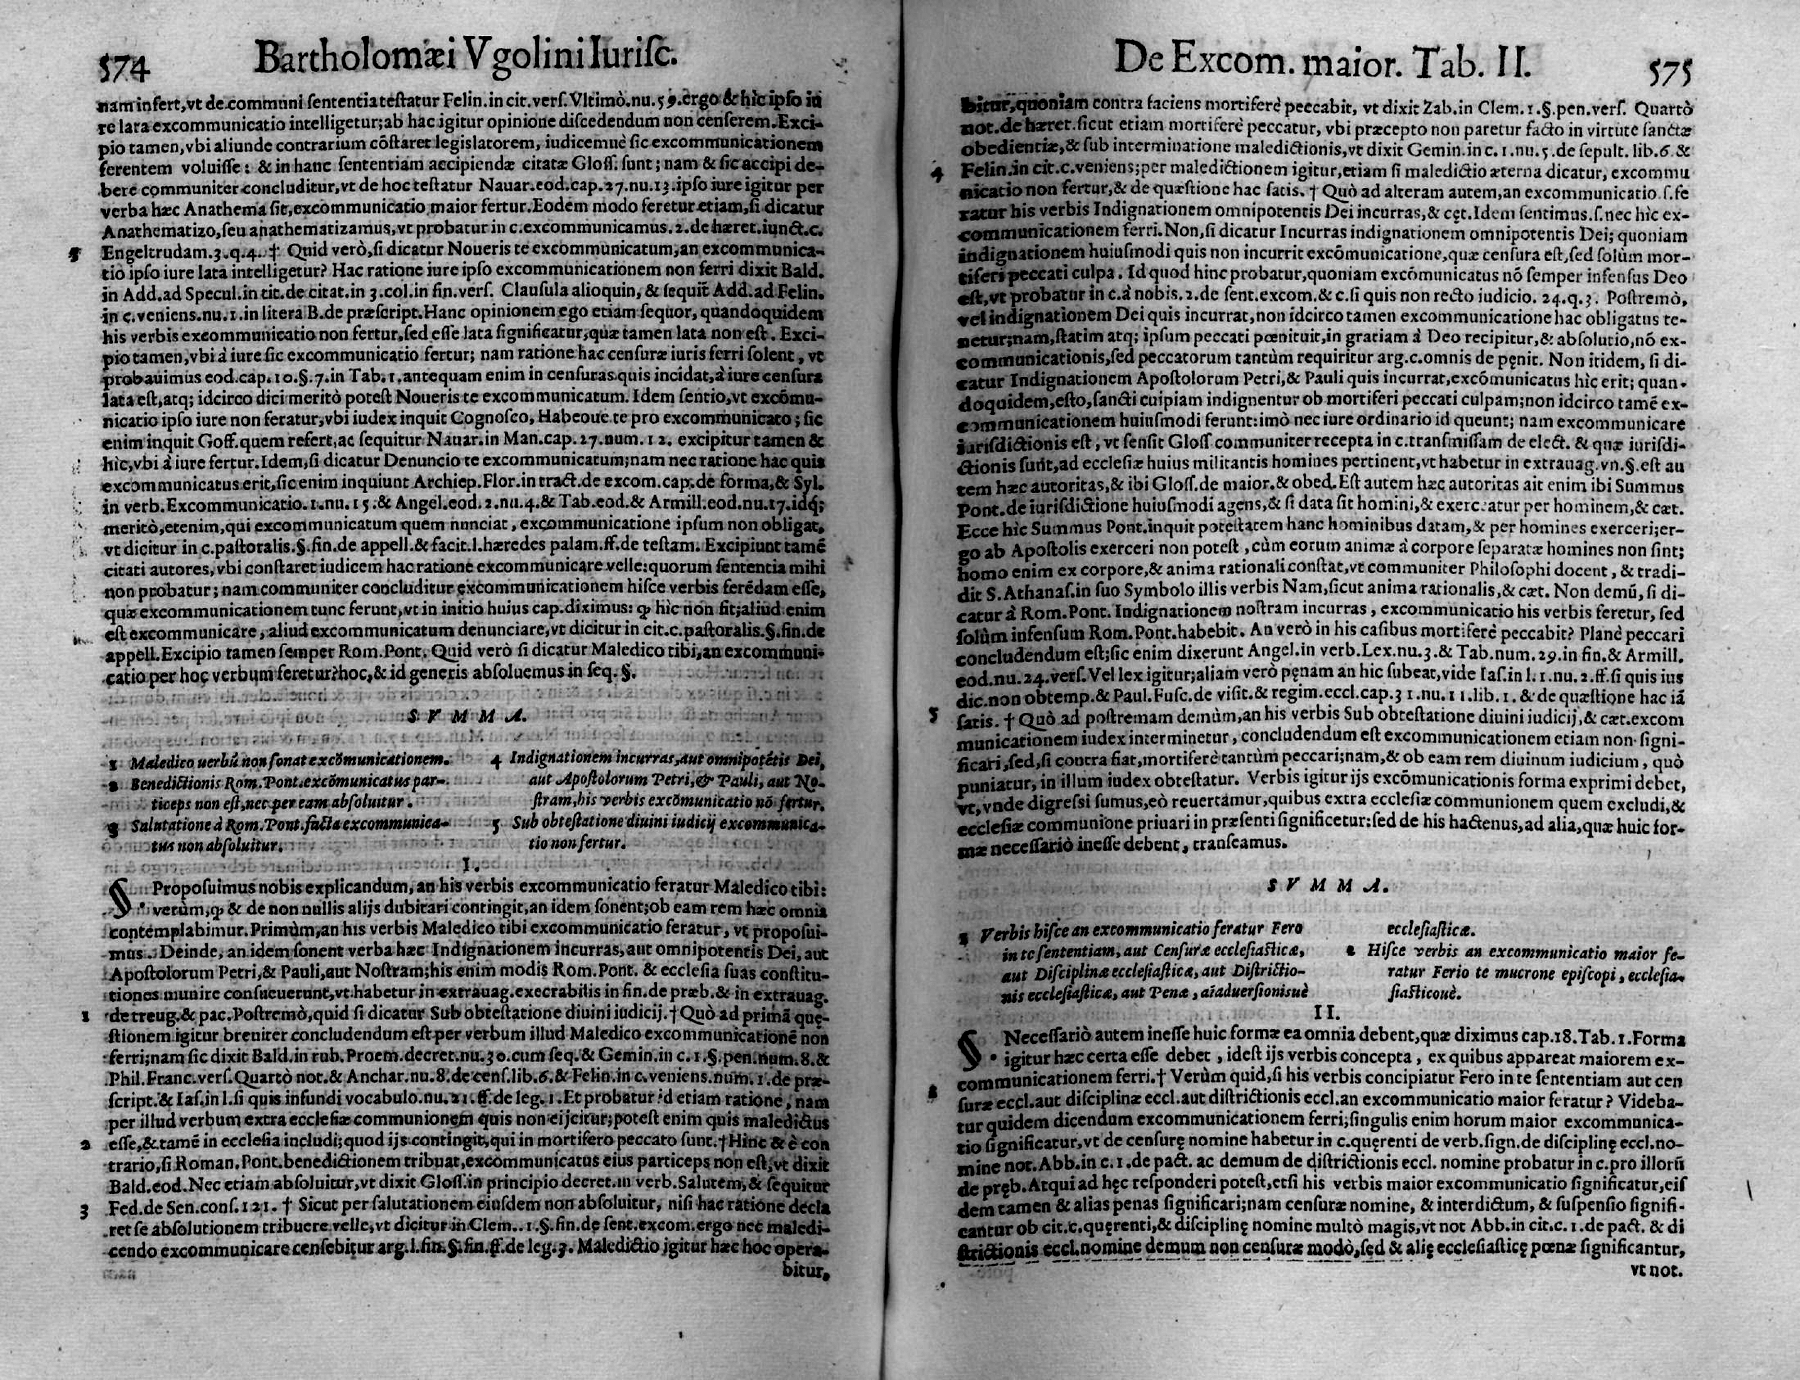 574 Bartholomæi Vgolini Iurisc.
nam infert, vt de communi sententia testatur Felin. in cit. vers. Vltimò. nu. 59. ergo & hìc ipso iu
re lata excommunicatio intelligetur; ab hac igitur opinione discedendum non censerem. Exci-
pio tamen, vbi aliunde contrarium cõstaret legislatorem, iudicemuè sic excommunicationem
ferentem voluisse: & in hanc sententiam accipiendæ citatæ Gloss. sunt; nam & sic accipi de-
bere communiter concluditur, vt de hoc testatur Nauar. eod. cap. 27. nu. 13. ipso iure igitur per
verba hæc Anathema sit, excommunicatio maior fertur. Eodem modo feretur etiam, si dicatur
Anathematizo, seu anathematizamus, vt probatur in c. excommunicamus. 2. de hæret. iunct. c.
5 Engeltrudam. 3. q. 4. † Quid verò, si dicatur Noueris te excommunicatum, an excommunica-
tio ipso iure lata intelligetur? Hac ratione iure ipso excommunicationem non ferri dixit Bald.
in Add. ad Specul. in tit. de citat. in 3. col. in fin. vers. Clausula alioquin, & sequit̃ Add. ad Felin.
in c. veniens. nu. 1. in litera B. de præscript. Hanc opinionem ego etiam sequor, quandoquidem
his verbis excommunicatio non fertur, sed esse lata significatur, quæ tamen lata non est. Exci-
pio tamen, vbi à iure sic excommunicatio fertur; nam ratione hac censuræ iuris ferri solent, vt
probauimus eod. cap. 10. §. 7. in Tab. 1. antequam enim in censuras quis incidat, à iure censura
lata est, atq; idcirco dici meritò potest Noueris te excommunicatum. Idem sentio, vt excõmu-
nicatio ipso iure non feratur, vbi iudex inquit Cognosco, Habeoue te pro excommunicato; sic
enim inquit Goff. quem refert, ac sequitur Nauar. in Man. cap. 27. num. 12. excipitur tamen &
hìc, vbi à iure fertur. Idem, si dicatur Denuncio te excommunicatum; nam nec ratione hac quis
excommunicatus erit, sic enim inquiunt Archiep. Flor. in tract. de excom. cap. de forma, & Syl.
in verb. Excommunicatio. 1. nu. 15. & Angel. eod. 2. nu. 4. & Tab. eod. & Armill. eod. nu. 17. idq;
meritò, etenim, qui excommunicatum quem nunciat, excommunicatione ipsum non obligat,
vt dicitur in c. pastoralis. §. fin. de appell. & facit. l. hæredes palam. ff. de testam. Excipiunt tamẽ
citati autores, vbi constaret iudicem hac ratione excommunicare velle: quorum sententia mihi
non probatur; nam communiter concluditur excommunicationem hisce verbis ferẽdam esse,
quæ excommunicationem tunc ferunt, vt in initio huius cap. diximus: ꝙ hìc non fit; aliud enim
est excommunicare, aliud excommunicatum denunciare, vt dicitur in cit. c. pastoralis. §. fin. de
appell. Excipio tamen semper Rom. Pont. Quid verò si dicatur Maledico tibi, an excommuni-
catio per hoc verbum feretur? hoc, & id generis absoluemus in seq. §.
S V M M A.
1 Maledico uerbũ non sonat excõmunicationem.
2 Benedictionis Rom. Pont. excõmunicatus par-
ticeps non est, nec per eam absoluitur.
3 Salutatione à Rom. Pont. facta excommunica-
tus non absoluitur.
4 Indignationem incurras, aut omnipotẽtis Dei,
aut Apostolorum Petri, & Pauli, aut No-
stram, his verbis excõmunicatio nõ fertur.
5 Sub obtestatione diuini iudicij excommunica-
tio non fertur.
I.
§. Proposuimus nobis explicandum, an his verbis excommunicatio feratur Maledico tibi:
verùm, ꝙ & de non nullis alijs dubitari contingit, an idem sonent; ob eam rem hæc omnia
contemplabimur. Primùm, an his verbis Maledico tibi excommunicatio feratur, vt proposui-
mus. Deinde, an idem sonent verba hæc Indignationem incurras, aut omnipotentis Dei, aut
Apostolorum Petri, & Pauli, aut Nostram; his enim modis Rom. Pont. & ecclesia suas constitu-
tiones munire consueuerunt, vt habetur in extrauag. execrabilis in fin. de præb. & in extrauag.
1 de treug. & pac. Postremò, quid si dicatur Sub obtestatione diuini iudicij. † Quò ad primã quę-
stionem igitur breniter concludendum est per verbum illud Maledico excommunicationẽ non
ferri; nam sic dixit Bald. in rub. Proem. decret. nu. 30. cum seq. & Gemin. in c. 1. §. pen. num. 8. &
Phil. Franc. vers. Quartò not. & Anchar. nu. 8. de cens. lib. 6. & Felin. in c. veniens. num. 1. de præ-
script. & Ias. in l. si quis infundi vocabulo. nu. 21. ff. de leg. 1. Et probatur id etiam ratione, nam
per illud verbum extra ecclesiæ communionem quis non eijcitur; potest enim quis maledictus
2 esse, & tamẽ in ecclesia includi; quod ijs contingit, qui in mortifero peccato sunt. † Hinc & è con
trario, si Roman. Pont. benedictionem tribuat, excommunicatus eius particeps non est, vt dixit
Bald. eod. Nec etiam absoluitur, vt dixit Gloss. in principio decret. in verb. Salutem, & sequitur
3 Fed. de Sen. cons. 121. † Sicut per salutationem eiusdem non absoluitur, nisi hac ratione decla
ret se absolutionem tribuere velle, vt dicitur in Clem. 1. §. fin. de sent. excom. ergo nec maledi-
cendo excommunicare censebitur arg. l. fin. §. fin. ff. de leg. 3. Maledictio igitur hæc hoc opera-
bitur,
De Excom. maior. Tab. II. 575
bitur, quoniam contra faciens mortiferè peccabit, vt dixit Zab. in Clem. 1. §. pen. vers. Quartò
not. de hæret. sicut etiam mortiferè peccatur, vbi præcepto non paretur facto in virtute sanctæ
obedientiæ, & sub interminatione maledictionis, vt dixit Gemin. in c. 1. nu. 5. de sepult. lib. 6. &
4 Felin. in cit. c. veniens; per maledictionem igitur, etiam si maledictio æterna dicatur, excommu
nicatio non fertur, & de quæstione hac satis. † Quò ad alteram autem, an excommunicatio .s. fe
ratur his verbis Indignationem omnipotentis Dei incurras, & cęt. Idem sentimus .s. nec hìc ex-
communicationem ferri. Non, si dicatur Incurras indignationem omnipotentis Dei; quoniam
indignationem huiusmodi quis non incurrit excõmunicatione, quæ censura est, sed solùm mor-
tiferi peccati culpa. Id quod hinc probatur, quoniam excõmunicatus nõ semper infensus Deo
est, vt probatur in c. à nobis. 2. de sent. excom. & c. si quis non recto iudicio. 24. q. 3. Postremò,
vel indignationem Dei quis incurrat, non idcirco tamen excommunicatione hac obligatus te-
netur; nam, statim atq; ipsum peccati pœnituit, in gratiam à Deo recipitur, & absolutio, nõ ex-
communicationis, sed peccatorum tantùm requiritur arg. c. omnis de pęnit. Non itidem, si di-
catur Indignationem Apostolorum Petri, & Pauli quis incurrat, excõmunicatus hìc erit; quan-
doquidem, esto, sancti cuipiam indignentur ob mortiferi peccati culpam; non idcirco tamẽ ex-
communicationem huiusmodi ferunt: imò nec iure ordinario id queunt; nam excommunicare
iurisdictionis est, vt sensit Gloss. communiter recepta in c. transmissam de elect. & quæ iurisdi-
ctionis sunt, ad ecclesiæ huius militantis homines pertinent, vt habetur in extrauag. vn. §. est au
tem hæc autoritas, & ibi Gloss. de maior. & obed. Est autem hæc autoritas ait enim ibi Summus
Pont. de iurisdictione huiusmodi agens, & si data sit homini, & exerceatur per hominem, & cæt.
Ecce hìc Summus Pont. inquit potestatem hanc hominibus datam, & per homines exerceri; er-
go ab Apostolis exerceri non potest, cùm eorum animæ à corpore separatæ homines non sint;
homo enim ex corpore, & anima rationali constat, vt communiter Philosophi docent, & tradi-
dit S. Athanas. in suo Symbolo illis verbis Nam, sicut anima rationalis, & cæt. Non demũ, si di-
catur à Rom. Pont. Indignationem nostram incurras, excommunicatio his verbis feretur, sed
solùm infensum Rom. Pont. habebit. An verò in his casibus mortiferè peccabit? Planè peccari
concludendum est; sic enim dixerunt Angel. in verb. Lex. nu. 3. & Tab. num. 29. in fin. & Armill.
eod. nu. 24. vers. Vel lex igitur; aliam verò pęnam an hic subeat, vide Ias. in l. 1. nu. 2. ff. si quis ius
dic. non obtemp. & Paul. Fusc. de visit. & regim. eccl. cap. 31. nu. 11. lib. 1. & de quæstione hac iã
5 satis. † Quò ad postremam demùm, an his verbis Sub obtestatione diuini iudicij, & cæt. excom
municationem iudex interminetur, concludendum est excommunicationem etiam non signi-
ficari, sed, si contra fiat, mortiferè tantùm peccari; nam, & ob eam rem diuinum iudicium, quò
puniatur, in illum iudex obtestatur. Verbis igitur ijs excõmunicationis forma exprimi debet,
vt, vnde digressi sumus, eò reuertamur, quibus extra ecclesiæ communionem quem excludi, &
ecclesiæ communione priuari in præsenti significetur: sed de his hactenus, ad alia, quæ huic for-
mæ necessariò inesse debent, transeamus.
S V M M A.
1 Verbis hisce an excommunicatio feratur Fero
in te sententiam, aut Censuræ ecclesiasticæ,
aut Disciplinæ ecclesiasticæ, aut Districtio-
nis ecclesiasticæ, aut Penæ, aïaduersionisuè
ecclesiasticæ.
2 Hisce verbis an excommunicatio maior fe-
ratur Ferio te mucrone episcopi, ecclesia-
siasticouè.
II.
§. Necessariò autem inesse huic formæ ea omnia debent, quæ diximus cap. 18. Tab. 1. Forma
igitur hæc certa esse debet, idest ijs verbis concepta, ex quibus appareat maiorem ex-
communicationem ferri. † Verùm quid, si his verbis concipiatur Fero in te sententiam aut cen
suræ eccl. aut disciplinæ eccl. aut districtionis eccl. an excommunicatio maior feratur? Videba-
tur quidem dicendum excommunicationem ferri; singulis enim horum maior excommunica-
tio significatur, vt de censurę nomine habetur in c. quęrenti de verb. sign. de disciplinę eccl. no-
mine not. Abb. in c. 1. de pact. ac demum de districtionis eccl. nomine probatur in c. pro illorũ
de pręb. Atqui ad hęc responderi potest, etsi his verbis maior excommunicatio significatur, eis
dem tamen & alias penas significari; nam censuræ nomine, & interdictum, & suspensio signifi-
cantur ob cit. c. quęrenti, & disciplinę nomine multò magis, vt not Abb. in cit. c. 1. de pact. & di
strictionis eccl. nomine demum non censuræ modò, sed & alię ecclesiasticę pœnæ significantur,
vt not.